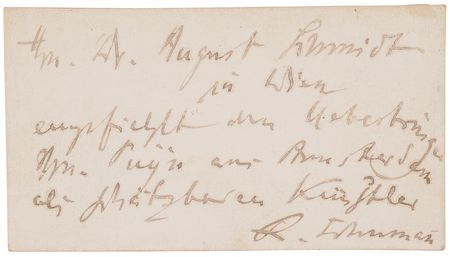 Hn. Dr. August Schmidt
in Wien
empfiehlt den Ueberbringer
Hn. aus Amsterdam
als schätzbaren Künstler
R. Schumann